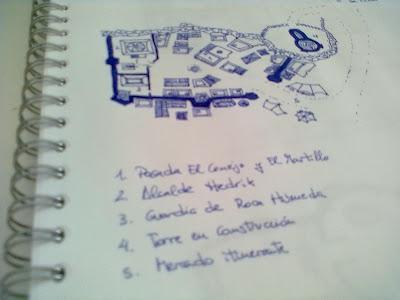 1. Posada El Conejo y El Martillo
2. Alcalde Hedrik
3. Guardia de Roca Húmeda
4. Torre en Construcción
5. Mercado itinerante